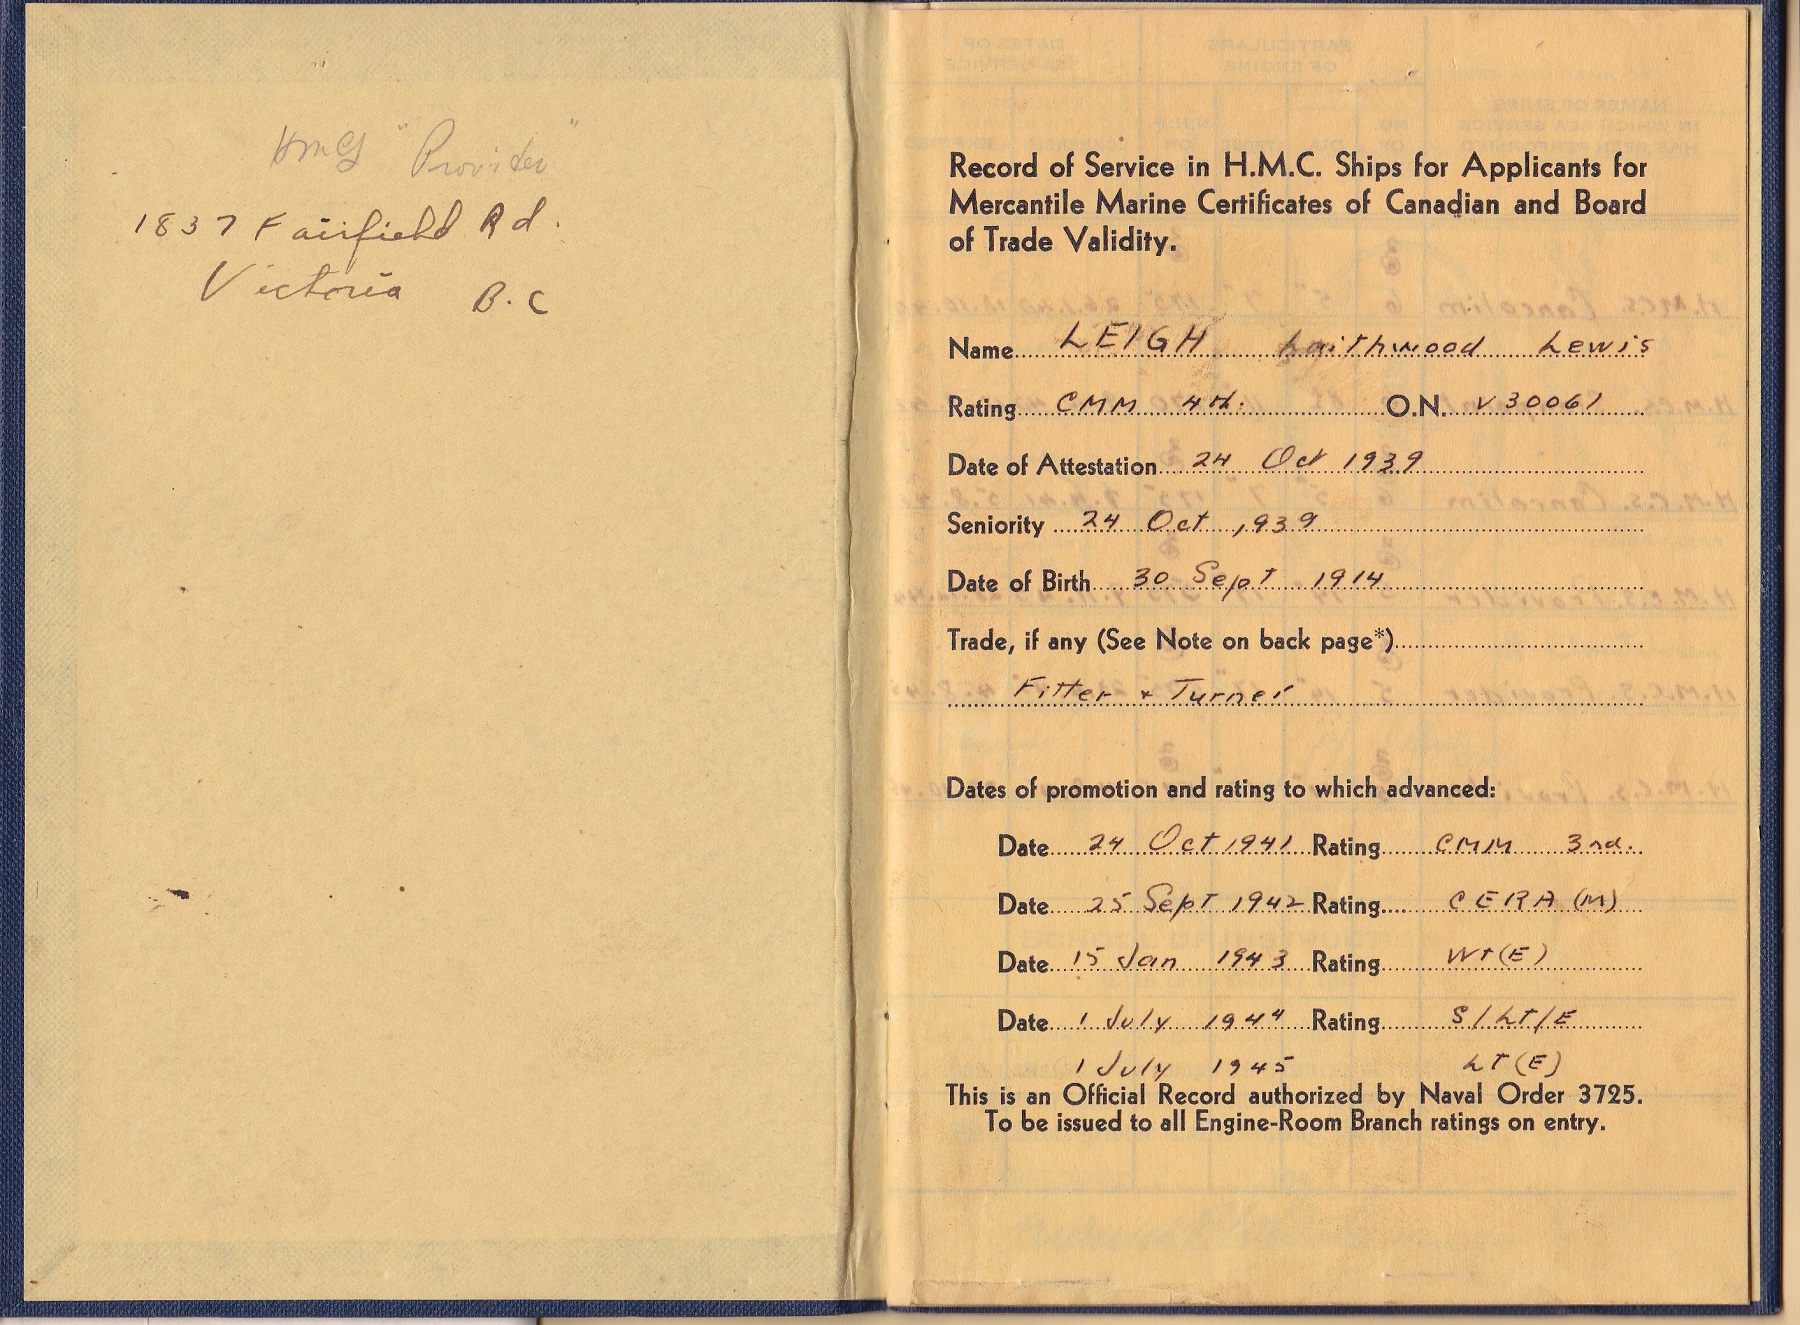 HMCS "Provider"
1837 Fairfield Rd.
Victoria B.C
Record of Service in H.M.C. Ships for Applicants for
Mercantile Marine Certificates of Canadian and Board
of Trade Validity.
Name LEIGH Laithwood Lewis
Rating CMM 4th. O.N. V30061
Date of Attestation 24 Oct 1939
Seniority 24 Oct 1939
Date of Birth 30 Sept 1914
Trade, if any (See Note on back page*)
Fitter + Turner
Dates of promotion and rating to which advanced:
Date 24 Oct 1941 Rating CMM 3rd.
Date 25 Sept 1942 Rating CERA (M)
Date 15 Jan 1943 Rating Wt(E)
Date 1 July 1944 Rating S/LT/E
1 July 1945 LT(E)
This is an Official Record authorized by Naval Order 3725.
To be issued to all Engine-Room Branch ratings on entry.